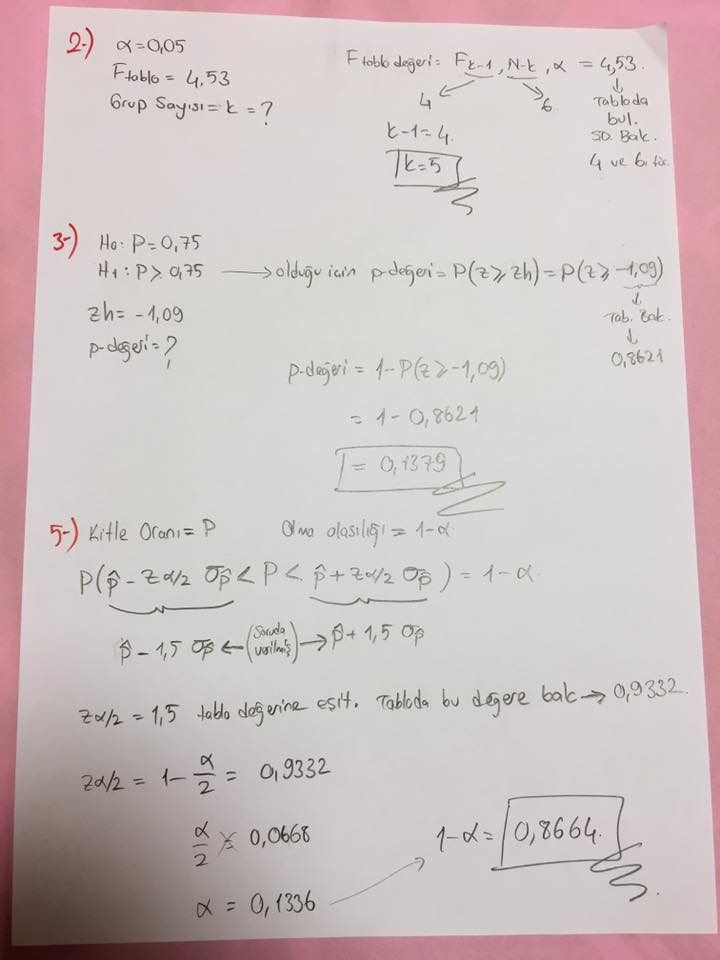 2-) α=0,05
Ftablo = 4,53
Grup Sayısı = k = ?
Ftablo değeri = Fk-1, N-k, α = 4,53.
4 6 Tabloda bul.
k-1=4. SD. Bak.
k=5 4 ve 6.
3-) H0: P=0,75
H1: P>0,75 → olduğu için p-değeri = P(z≥zh) = P(z≥-1,09)
zh = -1,09 Tab. Bak.
p-değeri = ? 0,8621
p-değeri = 1-P(z≥-1,09)
= 1-0,8621
= 0,1379
5-) Kitle Oranı = P Olma olasılığı = 1-α.
P(p̂ - zα/2 σp̂ < P < p̂ + zα/2 σp̂) = 1-α.
p̂ - 1,5 σp̂ ← (Soruda verilmiş) → p̂ + 1,5 σp̂
zα/2 = 1,5 tablo değerine eşit. Tabloda bu değere bak → 0,9332.
zα/2 = 1 - α/2 = 0,9332
α/2 = 0,0668
α = 0,1336
1-α = 0,8664.